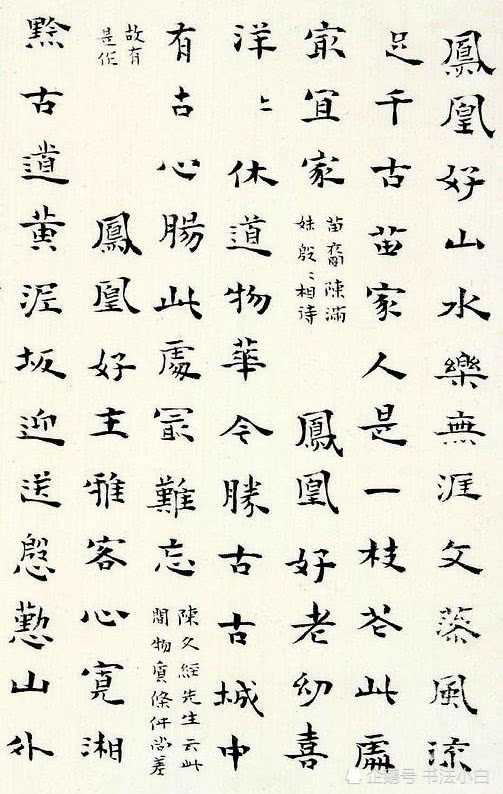 鳳凰好山水樂無涯文風流
足千古苗家人是一枝花此處
最宜家
苗裔陳滿
妹殷〻相待
鳳凰好老幼喜
洋〻休道物華今勝古古城中
有古心腸此處最難忘
陳文經先生云此
間物質條件尚差
故有
是作
鳳凰好主雅客心寬湘
黔古道黄泥坂迎送慇懃山外
企鹅号 书法小白